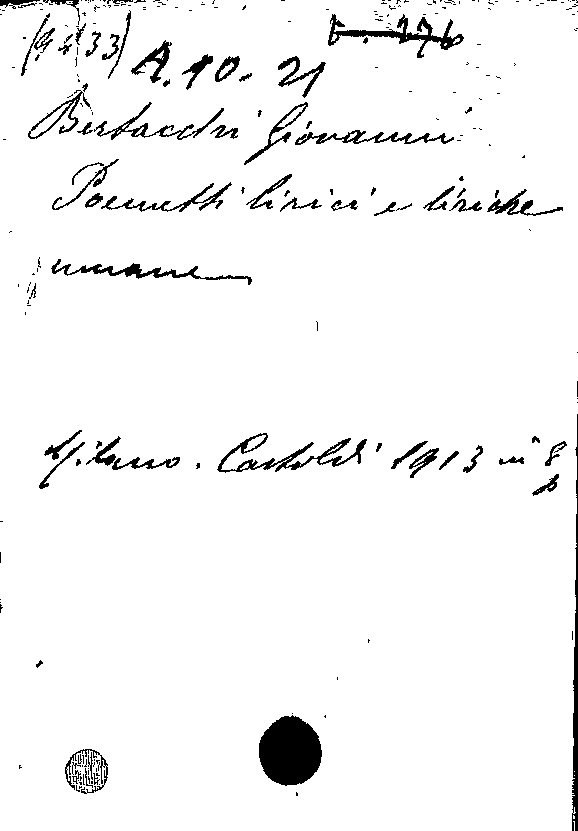 (9433) A. 10 - 21
Bertacchi Giovanni
Poemetti lirici e liriche
umane
Milano. Castoldi 1913 in 8